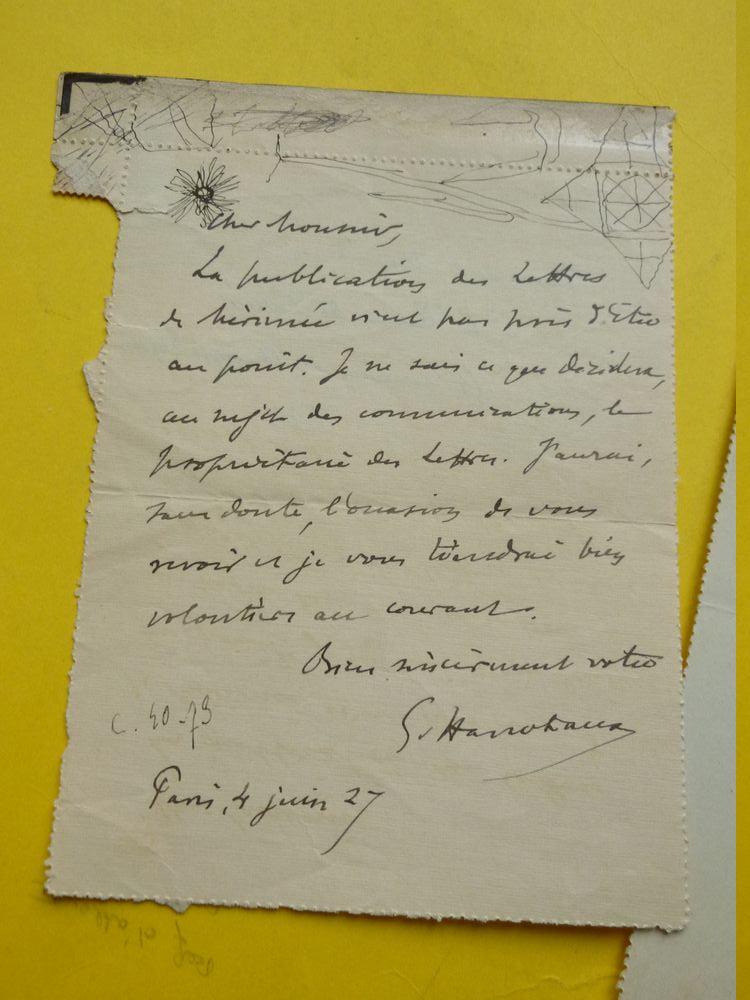 Cher Monsieur,
La publication des Lettres
de Mérimée n'est pas près d'être
au point. Je ne sais ce que décidera,
au sujet des communications, le
propriétaire des Lettres. J'aurai,
sans doute, l'occasion de vous
revoir et je vous tiendrai bien
volontiers au courant.
Bien sincèrement votre
C. 40-73
Paris, 4 juin 27